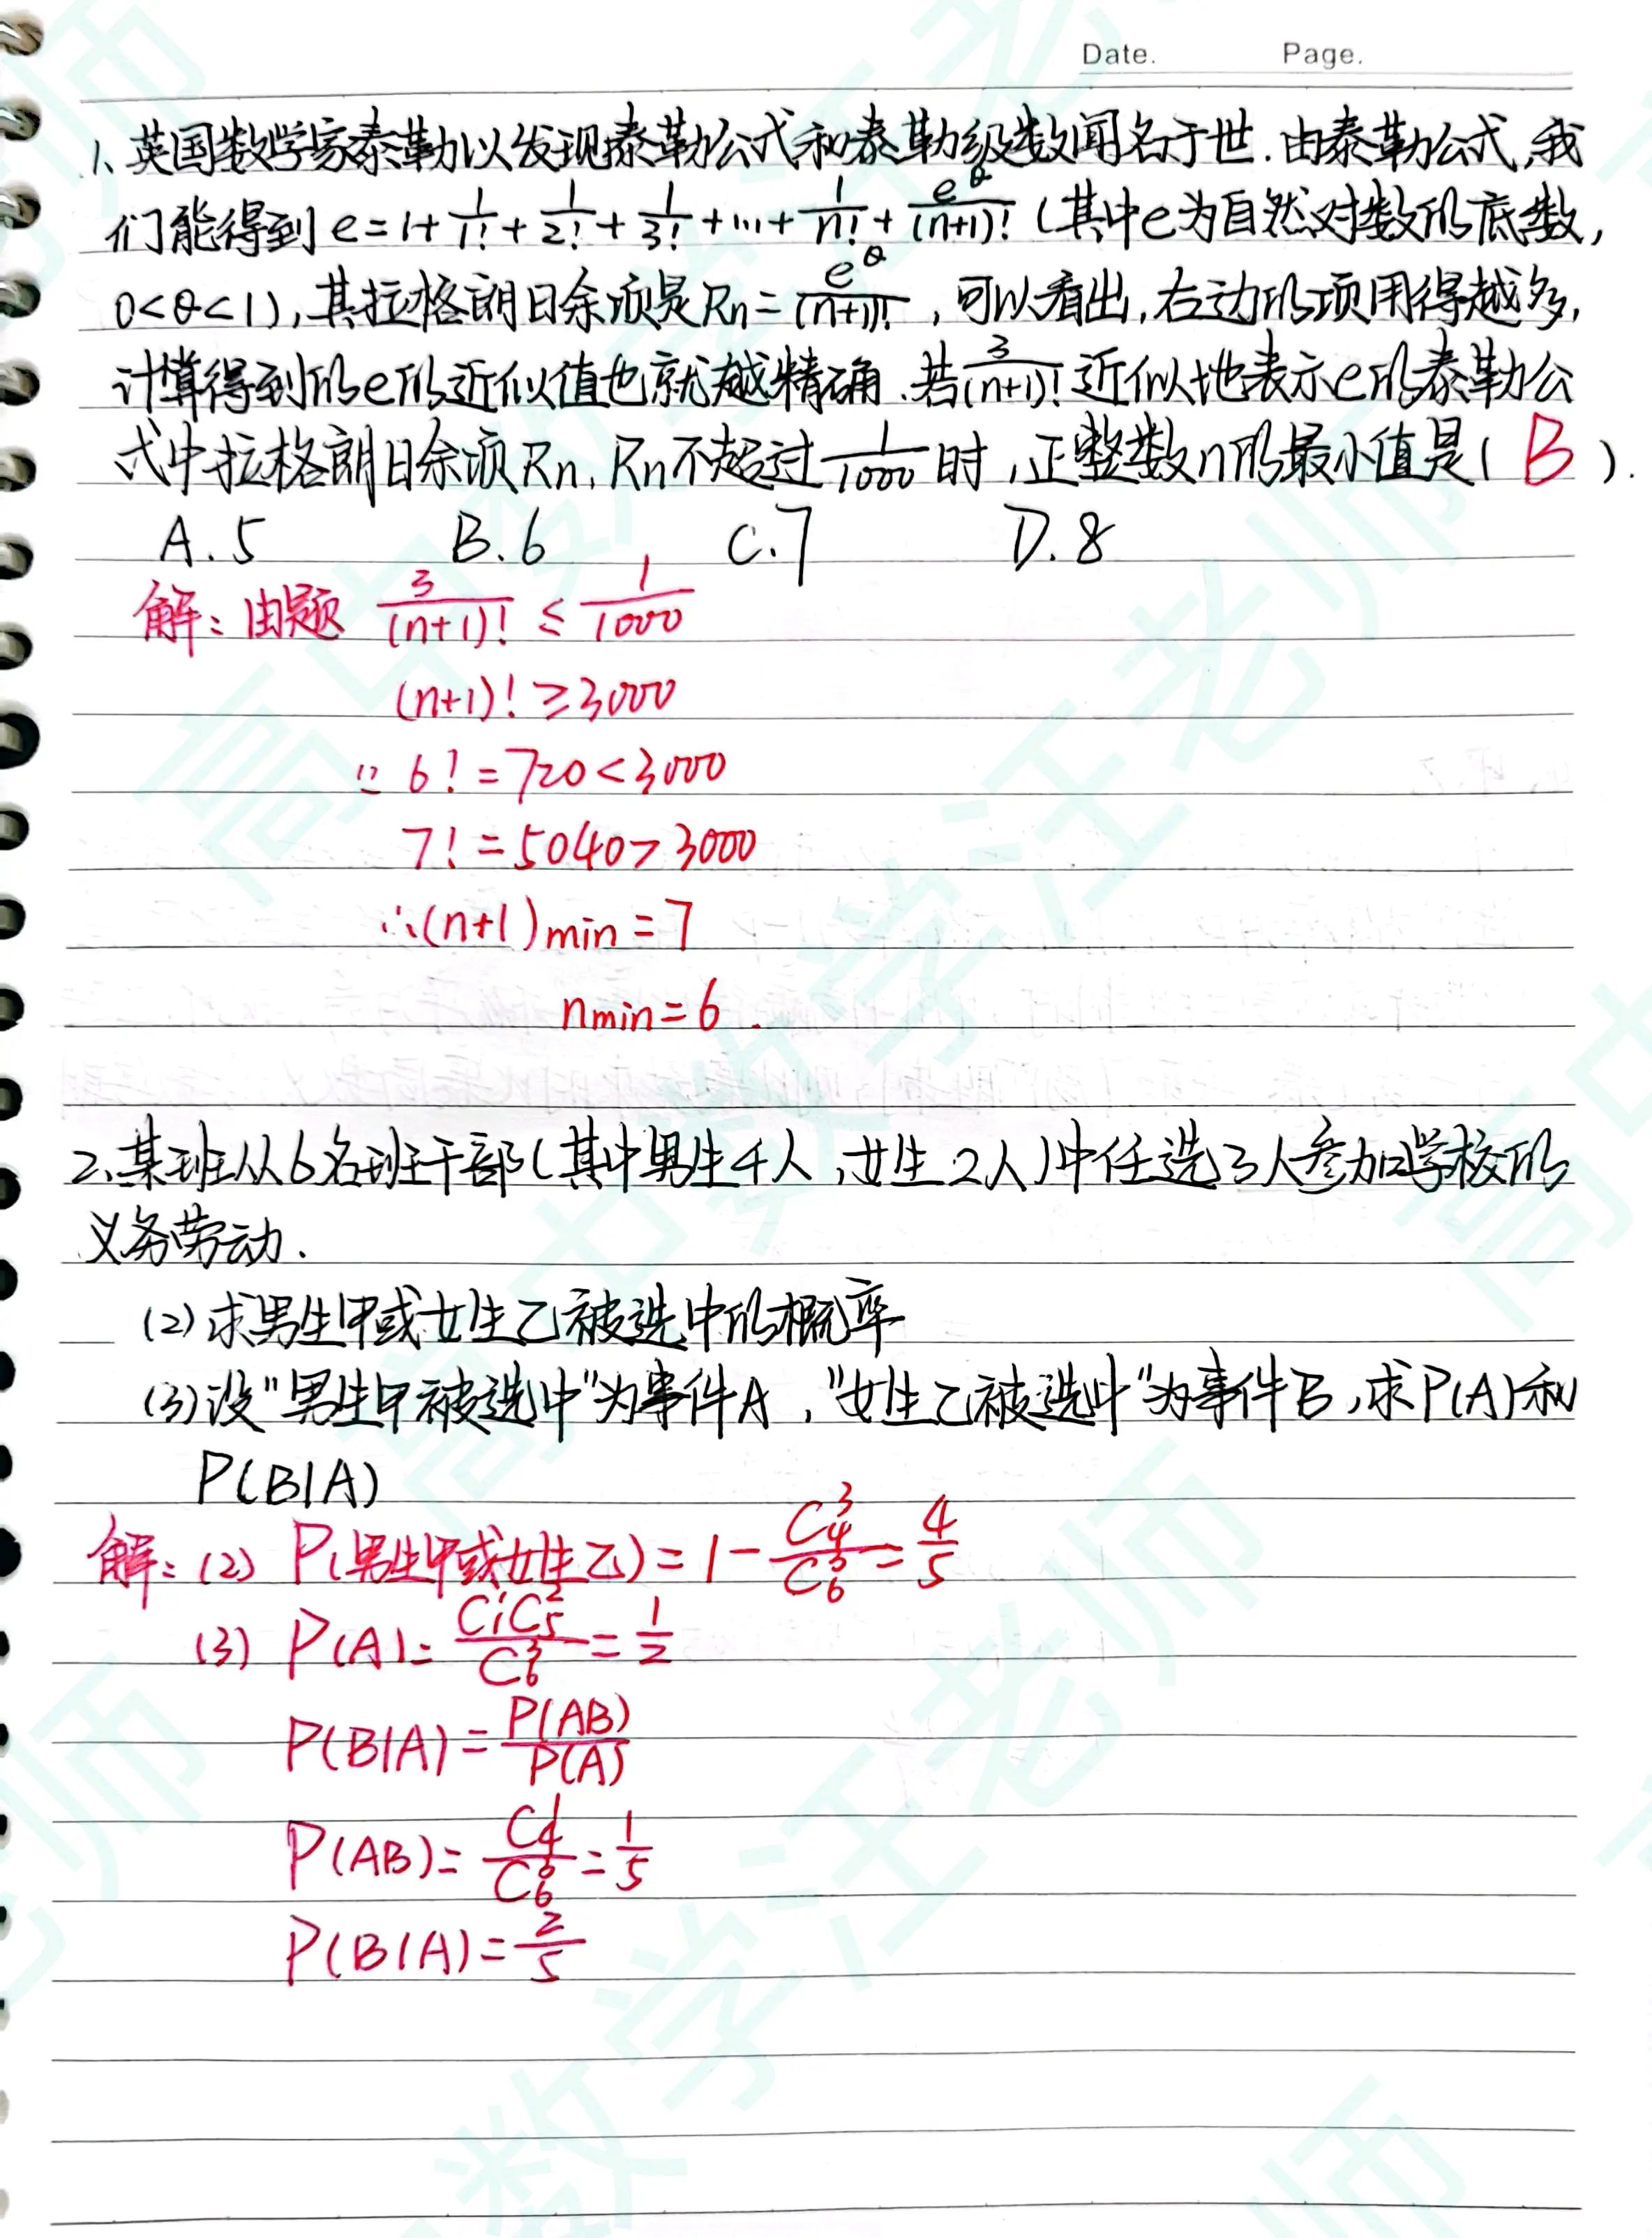 Date. Page.
1、英国数学家泰勒以发现泰勒公式和泰勒级数闻名于世.由泰勒公式,我
们能得到 e=1+1/1!+1/2!+1/3!+…+1/n!+e^θ/(n+1)! (其中e为自然对数的底数,
0<θ<1),其拉格朗日余项是Rn=e^θ/(n+1)!,可以看出,右边的项用得越多,
计算得到的e的近似值也就越精确.若3/(n+1)!近似地表示e的泰勒公
式中拉格朗日余项Rn,Rn不超过1/1000时,正整数n的最小值是( B ).
A.5 B.6 C.7 D.8
解:由题 3/(n+1)! ≤ 1/1000
(n+1)! ≥3000
∵ 6!=720<3000
7!=5040>3000
∴(n+1)min=7
nmin=6.
2、某班从6名班干部(其中男生4人,女生2人)中任选3人参加学校的
义务劳动.
(2)求男生甲或女生乙被选中的概率
(3)设"男生甲被选中"为事件A,"女生乙被选中"为事件B,求P(A)和
P(B|A)
解:(2) P(男生甲或女生乙)=1-C₄³/C₆³=4/5
(3) P(A)=C₁¹C₅²/C₆³=1/2
P(B|A)=P(AB)/P(A)
P(AB)=C₄¹/C₆³=1/5
P(B|A)=2/5
高中数学汪老师